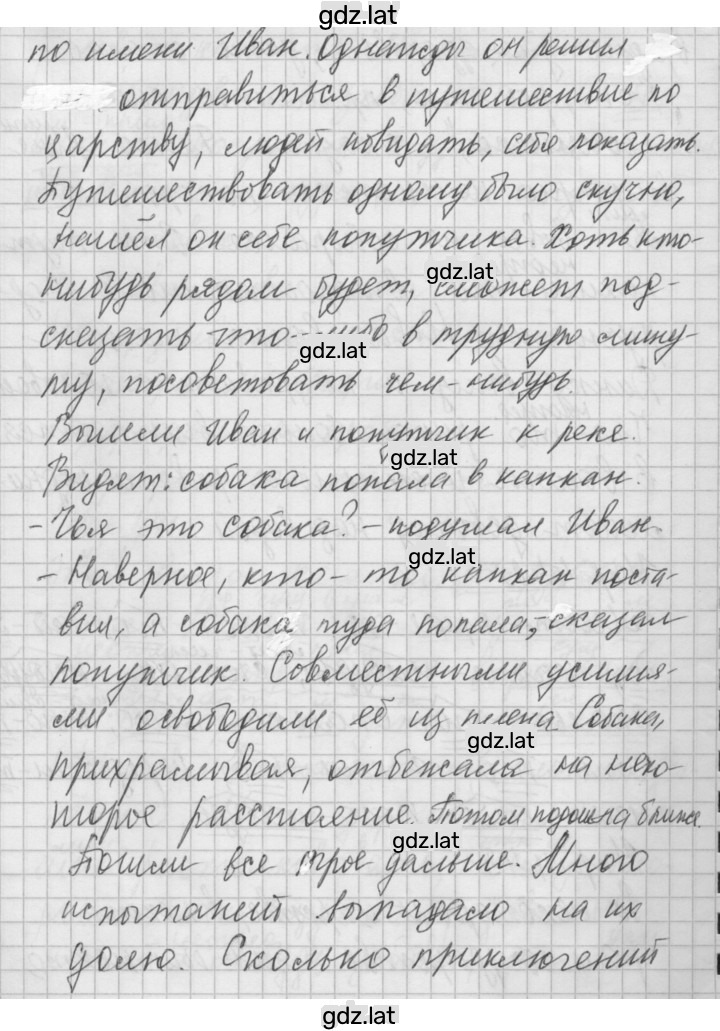 gdz.lat
по имени Иван. Однажды он решил
отправиться в путешествие по
царству, людей повидать, себя показать.
Путешествовать одному было скучно,
нашёл он себе попутчика. Хоть кто-
gdz.lat
нибудь рядом будет, сможет под-
сказать что-либо в трудную мину-
gdz.lat
ту, посоветовать чем-нибудь.
Вышли Иван и попутчик к реке.
gdz.lat
Видят: собака попала в капкан.
- Чья это собака? - подумал Иван.
gdz.lat
- Наверное, кто-то капкан поста-
вил, а собака туда попала, - сказал
попутчик. Совместными усилия-
ми освободили её из плена. Собака,
gdz.lat
прихрамывая, отбежала на неко-
торое расстояние. Потом подошла ближе.
gdz.lat
Пошли все трое дальше. Много
испытаний выпадало на их
долю. Сколько приключений
gdz.lat